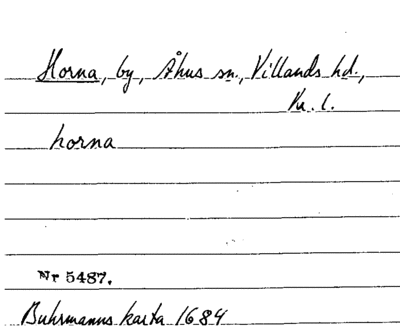 Horna, by, Åhus sn., Villands hd.,
Kr. l.
horna
Nr 5487.
Buhrmanns karta 1684